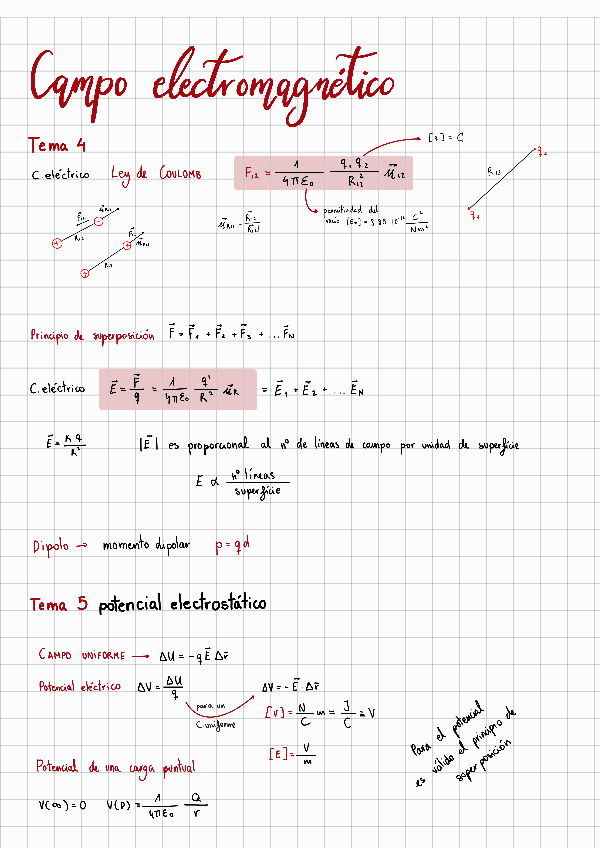 Campo electromagnético
Tema 4
[q] = C
C. eléctrico Ley de COULOMB F₁₂ = 1/4πε₀ q₁ q₂/R₁₂² u⃗₁₂
R₁₂
q₂
q₁
permitividad del
vacío [ε₀] = 8'85 · 10⁻¹² C²/Nm²
u⃗R₁₂ = R⃗₁₂/|R₁₂|
R₁₂
Principio de superposición F⃗ = F⃗₁ + F⃗₂ + F⃗₃ + ... F⃗N
C. eléctrico E⃗ = F⃗/q = 1/4πε₀ q'/R² u⃗R = E⃗₁ + E⃗₂ + ... E⃗N
E⃗ = K q/R² |E⃗| es proporcional al nº de lineas de campo por unidad de superficie
E ∝ nº líneas/superficie
Dipolo → momento dipolar p = q d
Tema 5 potencial electrostático
CAMPO UNIFORME → ΔU = - q E⃗ Δr⃗
Potencial eléctrico ΔV = ΔU/q para un C. uniforme ΔV = - E⃗ Δr⃗
[V] = N/C m = J/C = V
[E] = V/m
Para el potencial
es válido el principio de
superposición
Potencial de una carga puntual
V(∞) = 0 V(P) = 1/4πε₀ Q/r